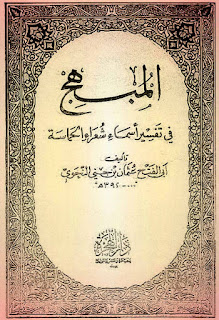 المبهج
في تفسير أسماء شعراء الحماسة
تأليف
أبي الفتح عثمان بن جني النحوي